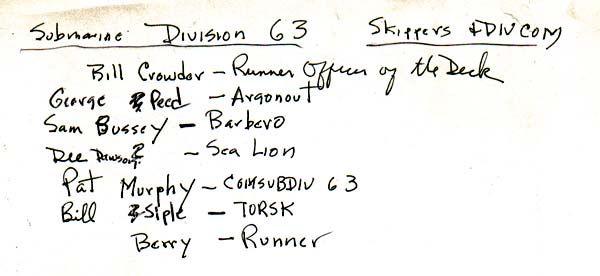 Submarine Division 63 Skippers & DIVCOM
Bill Crowder - Runner Officer of the Deck
George Peed - Argonout
Sam Bussey - Barbero
Dee Dawson? - Sea Lion
Pat Murphy - COMSUBDIV 63
Bill Siple - TORSK
Berry - Runner